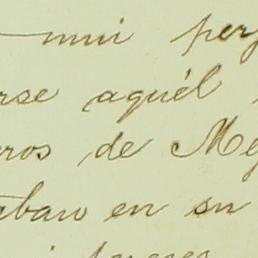 mui perj
rse aquél
ros de Mej
taban en su